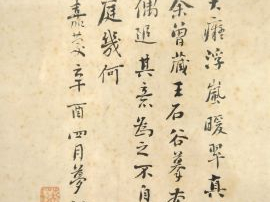 大癡浮嵐暖翠真
余曾藏王石谷摹本
偶追其意為之不自
庭幾何
嘉慶辛酉四月夢